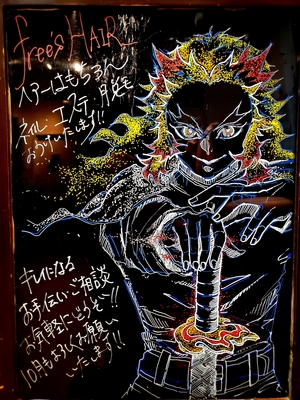 free's HAIR
ヘアーはもちろん
ネイル・エステ・脱毛
おうけいたします!!
キレイになる
お手伝いご相談
お気軽にどうぞ!!
10月もよろしくお願い
いたします!!